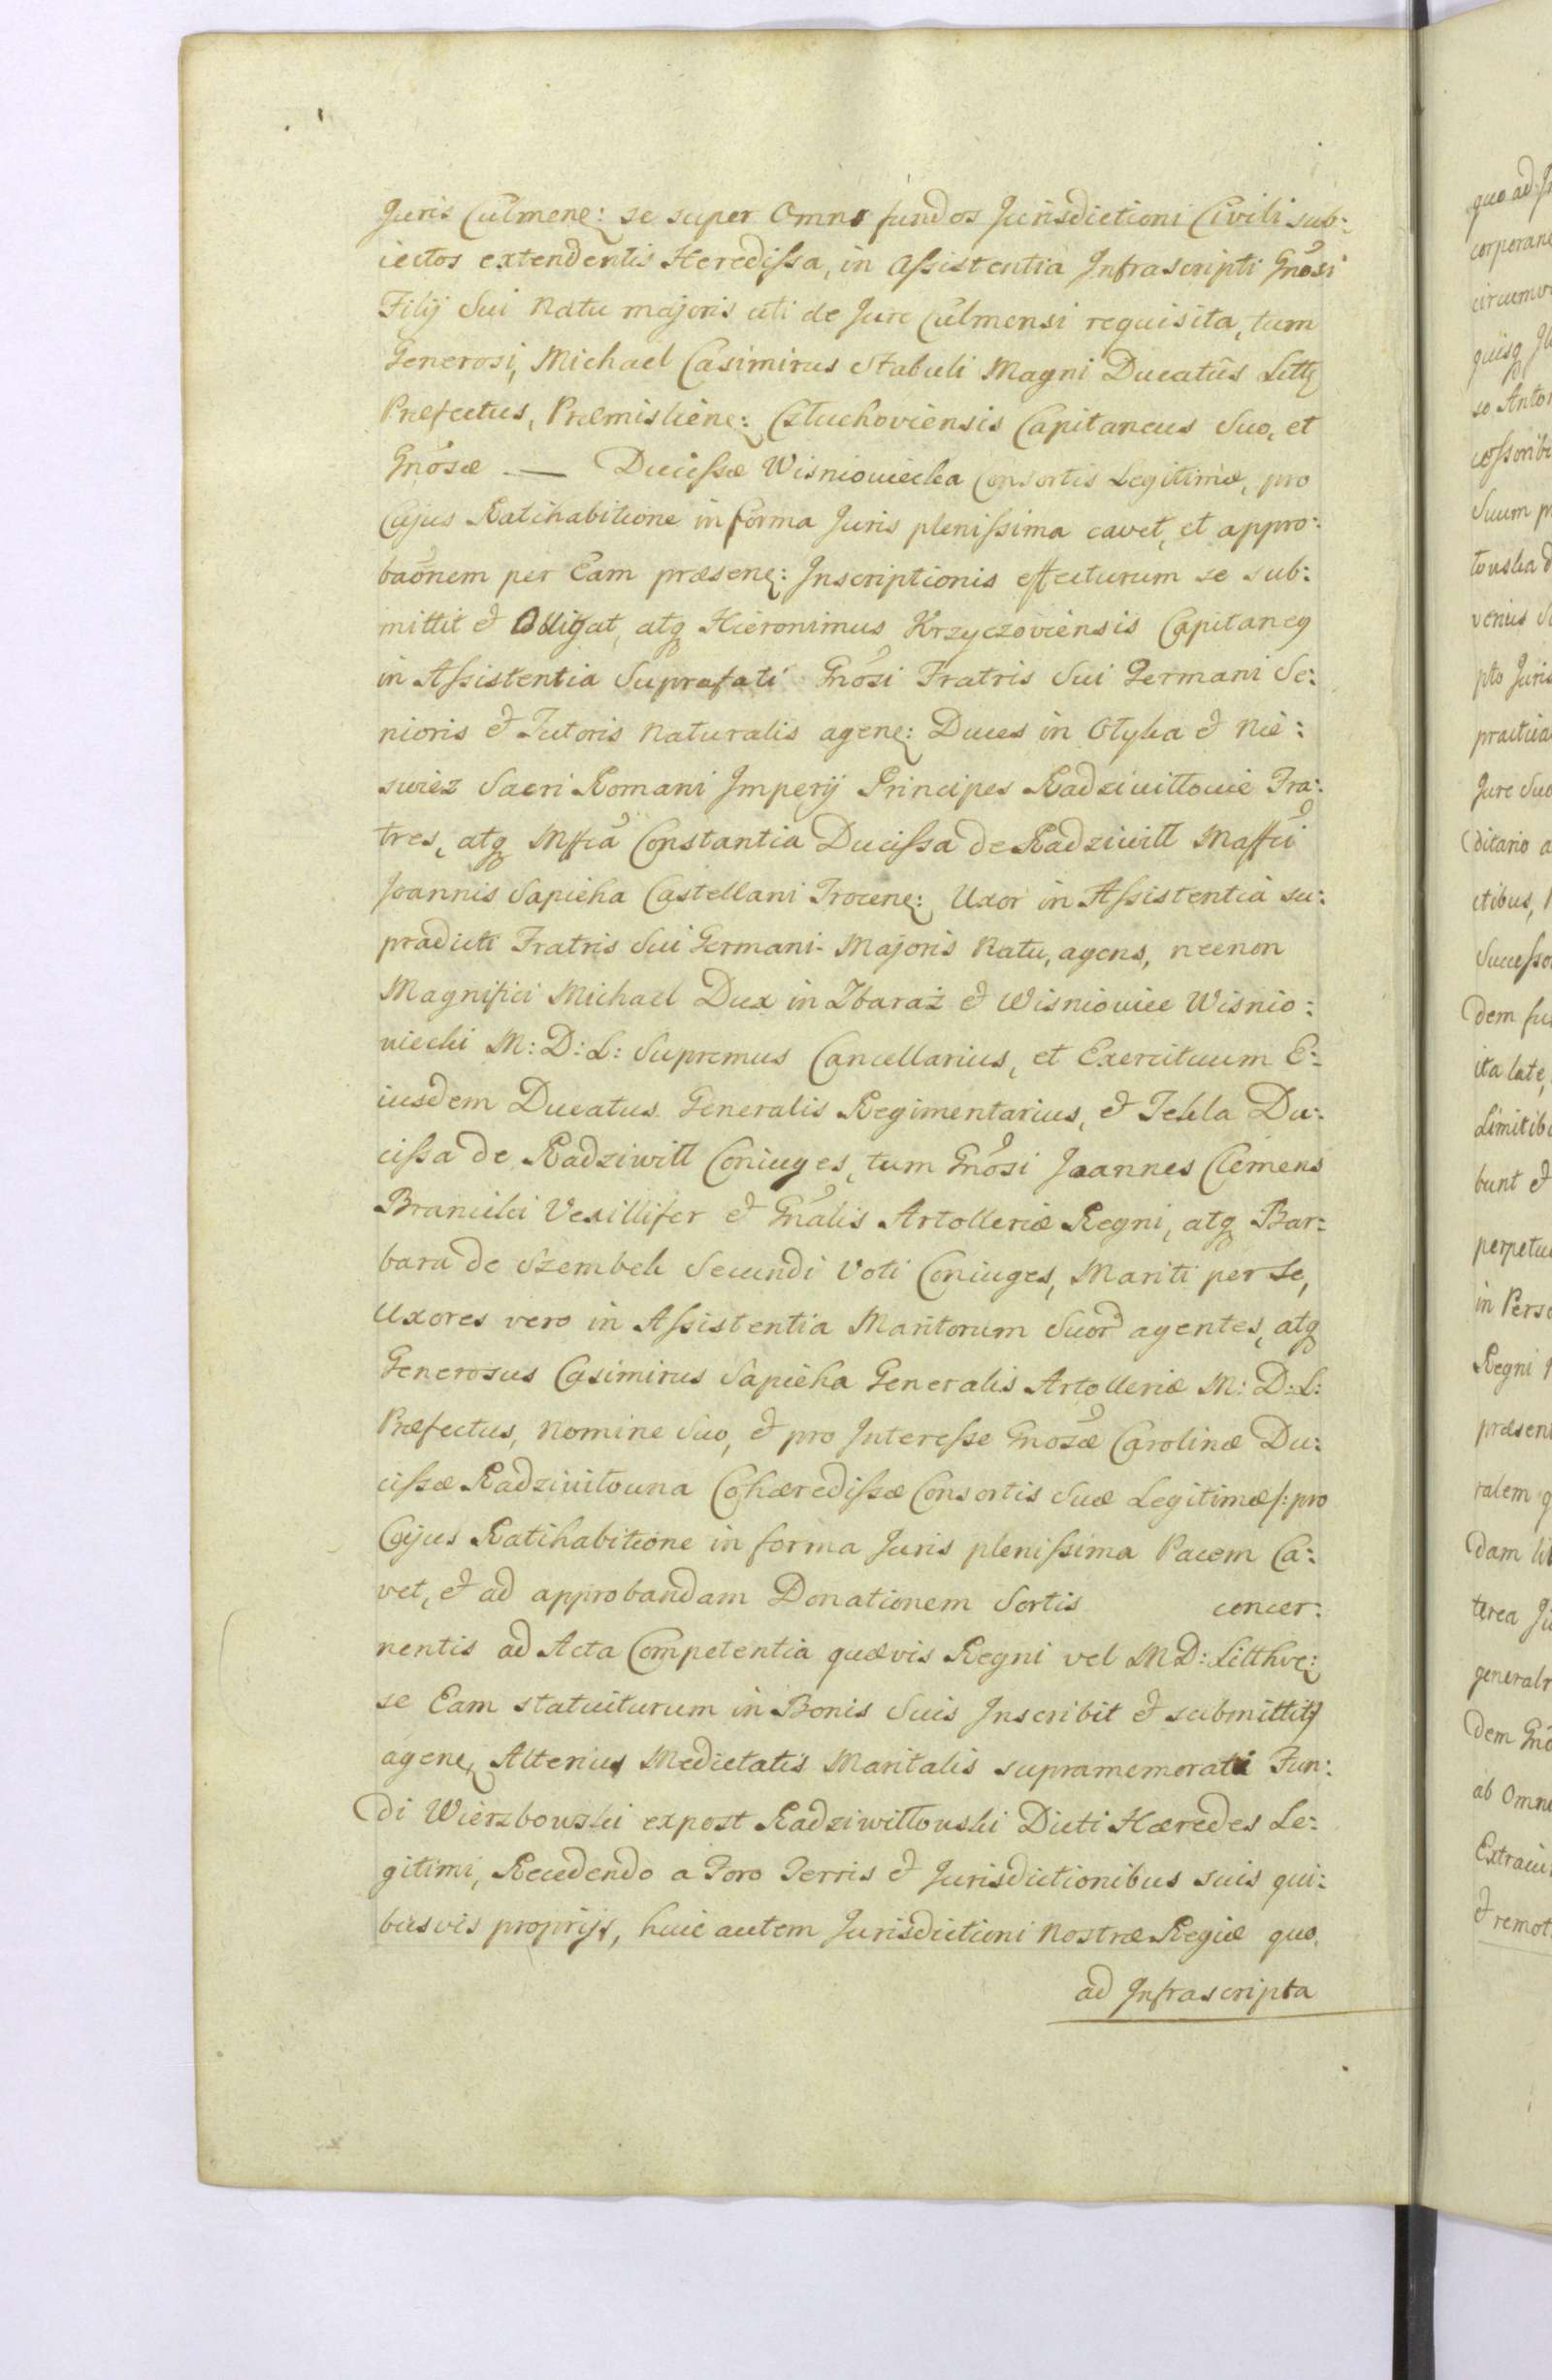 Juris Culmenę: se super Omns fundos Jurisdictioni Civili sub:
iectos extendentis Heredissa, in Assistentia Infrascripti Gnosi
Filij Sui Natu majoris uti de Jure Culmensi requisita, tum
Generosi, Michael Casimirus Stabuli Magni Ducatûs Littę
Præfectus, Præmislienę: Człuchoviensis Capitaneus Suo, et
Gnosæ — Ducissæ Wisniowiecka Consortis Legitimæ, pro
Cujus Ratihabitione in forma Juris plenissima cavet, et appro:
baonem per Eam præsenę: Inscriptionis effecturum se sub:
mittit & Obligat, atq Hieronimus Krzyczoviensis Capitaneq
in Assistentia Suprafati Gnosi Fratris Sui Germani Se:
nioris & Tutoris Naturalis agenę: Duces in Ołyka & Nie:
swiez Sacri Romani Imperij Principes Radziwiłłowie Fra:
tres, atq Mffca Constantia Ducissa de Radziwiłł Maffci
Joannis Sapieha Castellani Trocenę: Uxor in Assistentia su:
pradicti Fratris Sui Germani Majoris Natu, agens, necnon
Magnifici Michael Dux in Zbaraż & Wisniowiec Wisnio:
wiecki M: D: L: Supremus Cancellarius, et Exercituum E:
iusdem Ducatus Generalis Regimentarius, & Tekla Du:
cissa de Radziwiłł Coniuges, tum Gnosi Joannes Clemens
Branicki Vexillifer & Gnalis Artolleriæ Regni, atq Bar:
bara de Szembek Secundi Voti Coniuges, Mariti per Se,
Uxores vero in Assistentia Maritorum Suor agentes, atq
Generosus Casimirus Sapieha Generalis Artolleriæ M: D: L:
Præfectus, Nomine Suo, & pro Interesse Gnosæ Carolinæ Du:
cissæ Radziwiłowna Cohæredissæ Consortis Suæ Legitimæ /: pro
Cujus Ratihabitione in forma Juris plenissima Pacem Ca:
vet, & ad approbandam Donationem Sortis concer:
nentis ad Acta Competentia quævis Regni vel M D: Litthvę:
se Eam statuiturum in Bonis Suis Inscribit & submittit
agenę Alterius Medietatis Maritalis supramemorati Fun:
di Wierzbowski expost Radziwiłłowski Dicti Hæredes Le:
gitimi, Recedendo a Foro Terris & Jurisdictionibus suis qui:
busvis proprijs, huic autem Jurisdictioni Nostræ Regiæ quo
ad Infrascripta